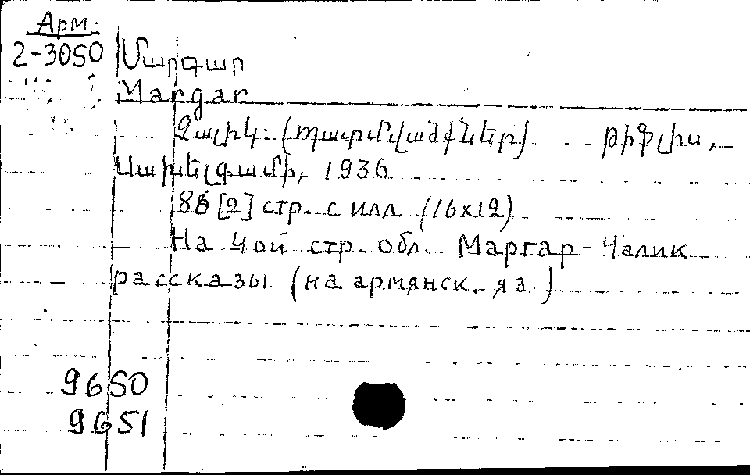 Арм.
2-3050 Մարգար
Margar
Չալիկ. (պատմվածքներ) Թիֆլիս,
1936
86 [2] стр. с илл. (16x12)
На 4ой стр. обл. Маргар-Чалик
рассказы (на армянск. яз.)
9650
9651